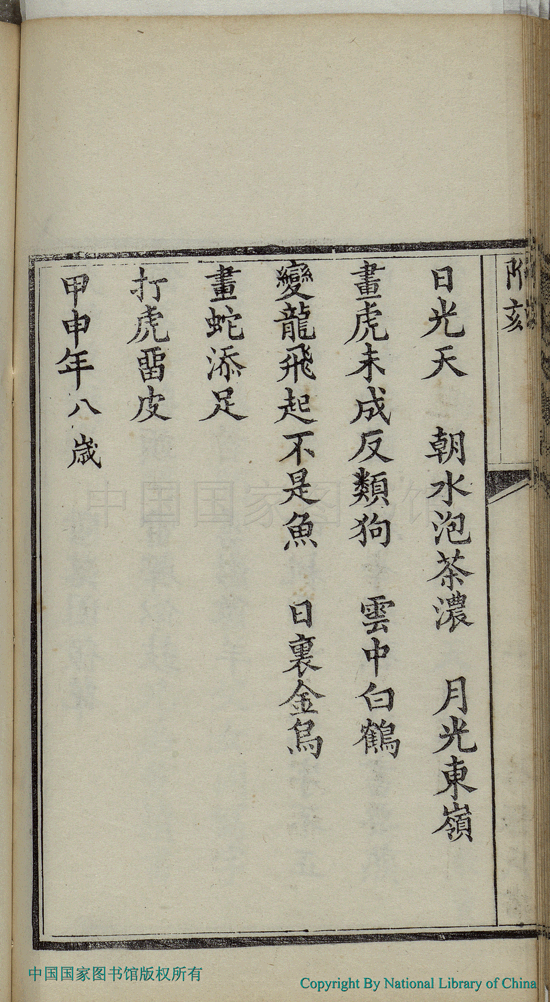 日光天　朝水泡茶濃　月光東嶺
畫虎未成反類狗　雲中白鶴
變龍飛起不是魚　日裏金烏
畫蛇添足
打虎畱皮
甲申年八歲
中国国家图书馆
中国国家图书馆版权所有
Copyright By National Library of China